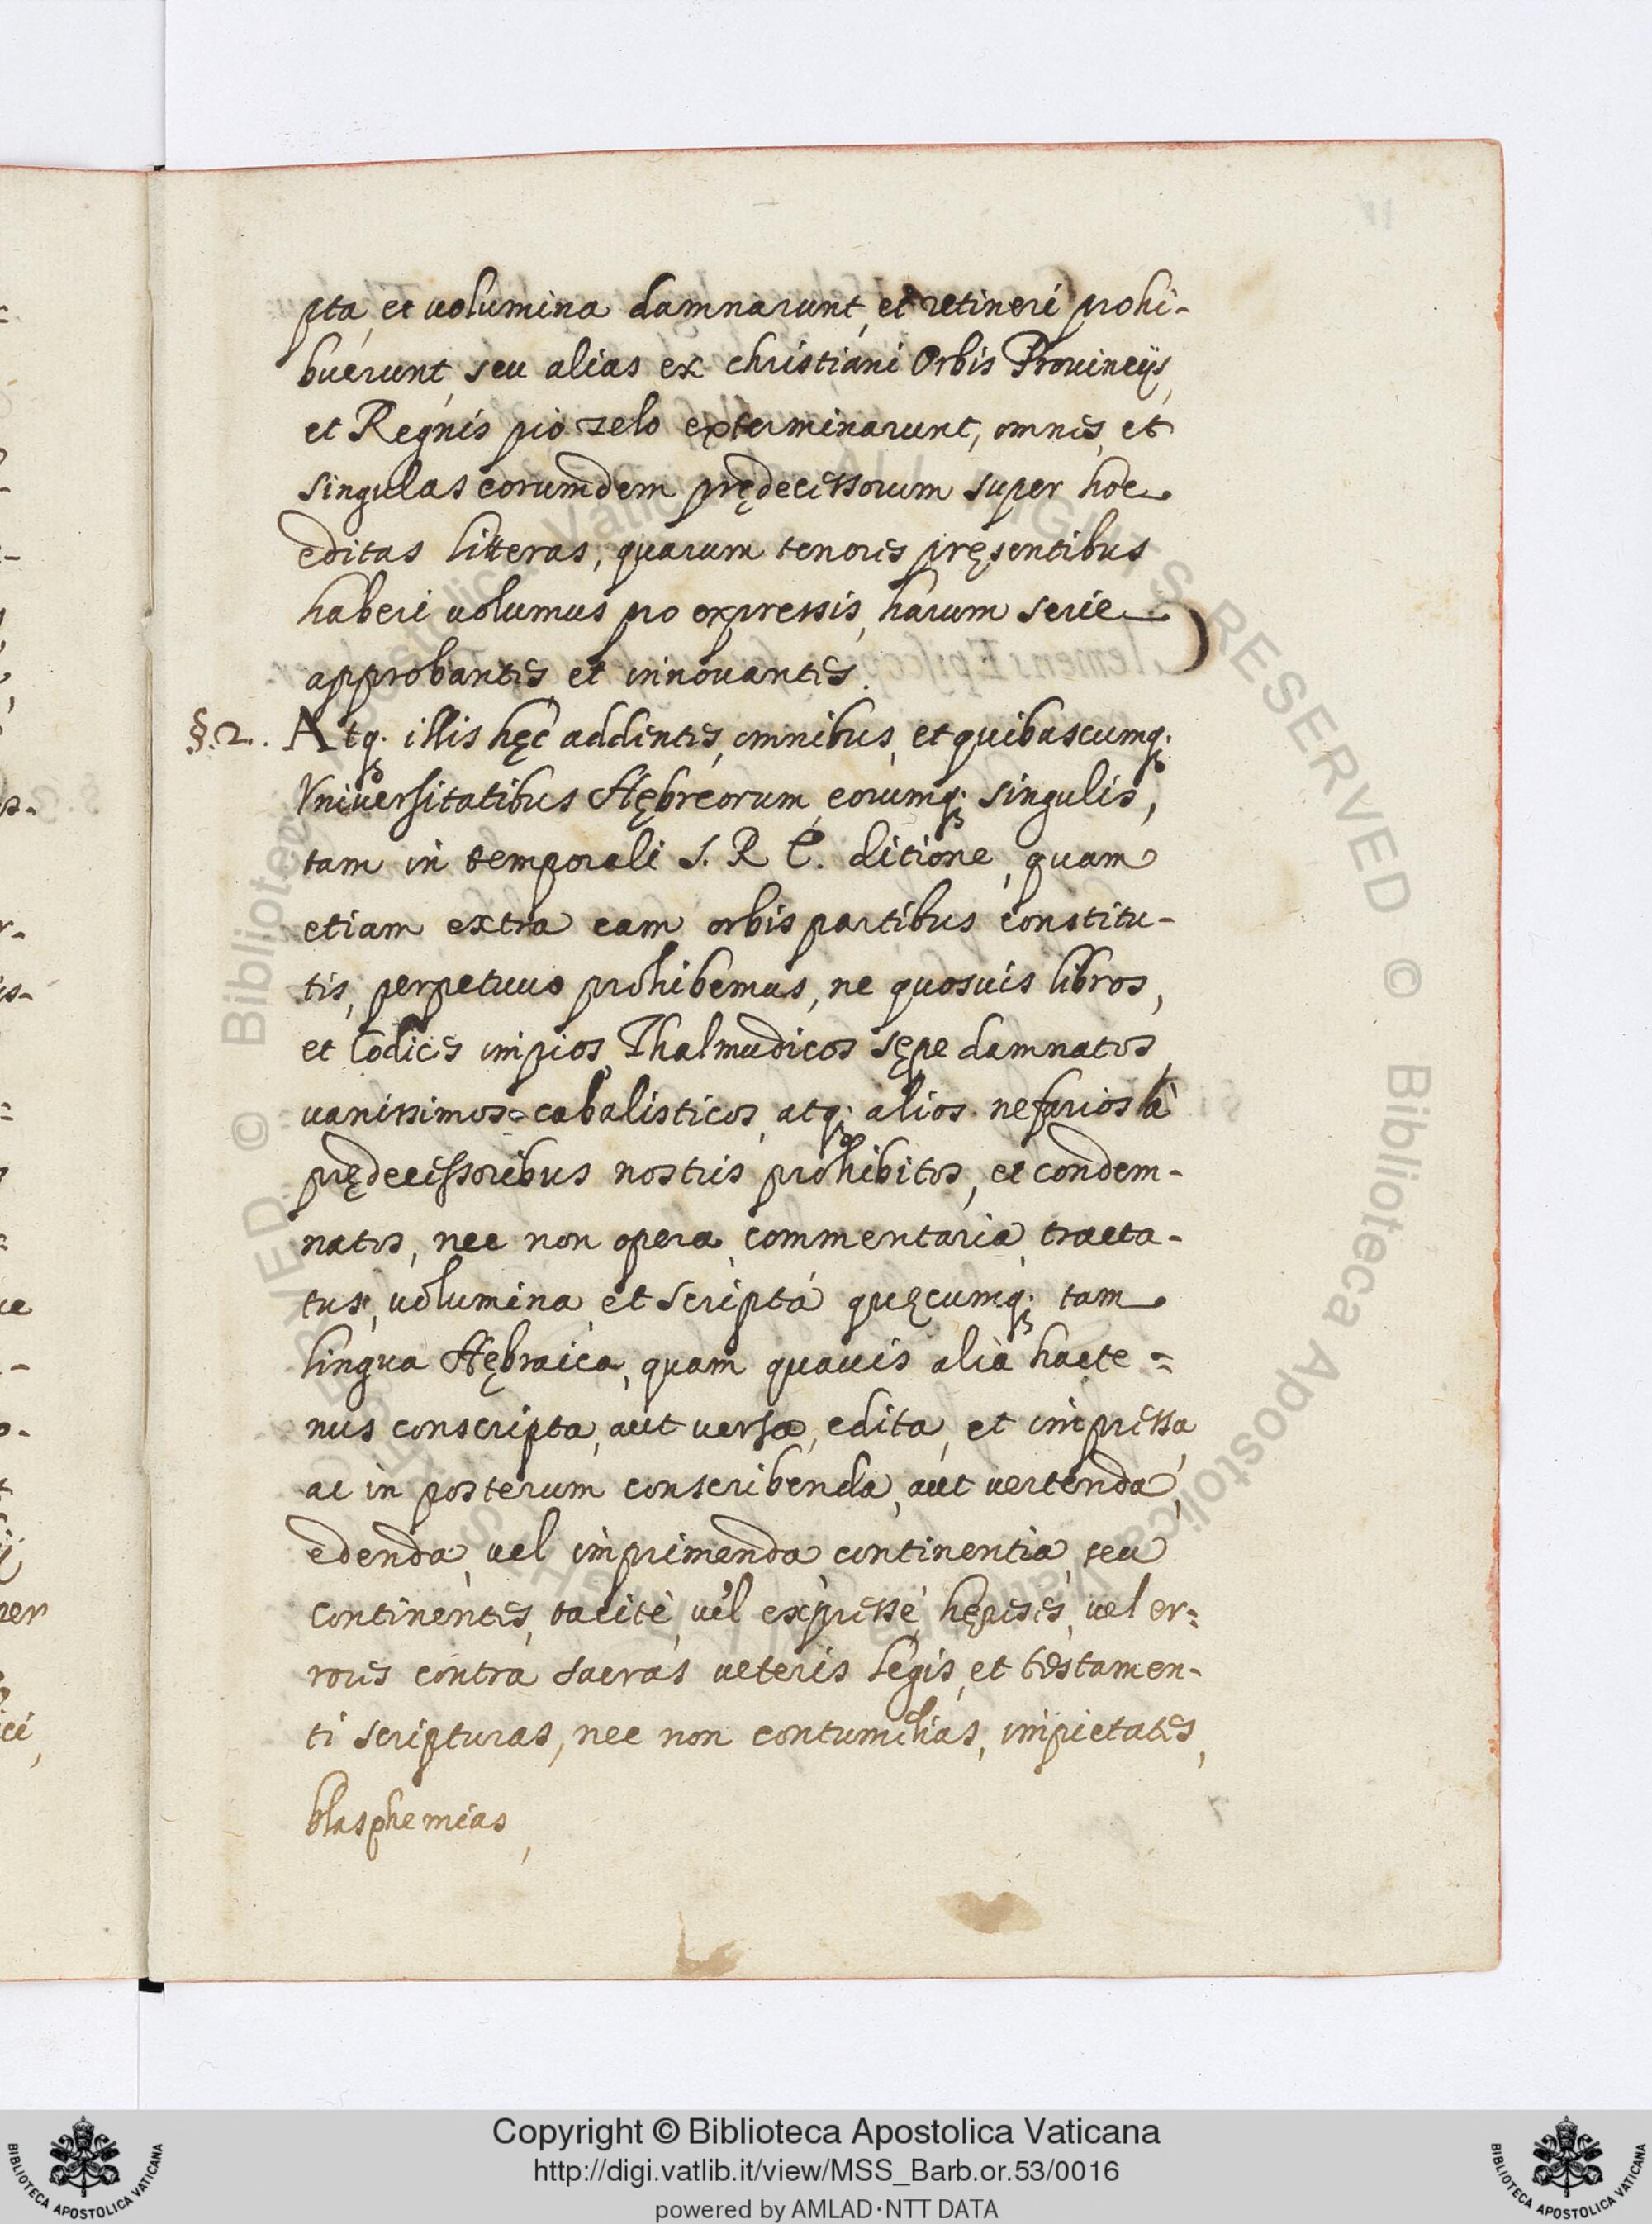 pta, et uolumina damnarunt, et retineri prohi-
buerunt, seu alias ex christiani Orbis Prouincijs,
et Regnis pio zelo exterminarunt, omnes, et
singulas eorumdem prędecessorum super hoc
editas litteras, quarum tenores pręsentibus
haberi uolumus pro expressis, harum serie
approbantes, et innouantes.
§.2. Atq; illis hęc addentes, omnibus, et quibuscumq;
Vniuersitatibus Hębreorum, eorumq; singulis,
tam in temporali S. R. E. ditione, quam
etiam extra eam orbis partibus constitu-
tis, perpetuuo prohibemus, ne quosuis libros,
et Codices impios, Thalmudicos sępe damnatos,
uanissimos cabalisticos, atq; alios nefarios à
prędecessoribus nostris prohibitos, et condem-
natos, nec non opera, commentaria, tracta-
tus, uolumina, et scripta quęcumq; tam
lingua Hębraica, quam quauis alia hacte=
nus conscripta, aut uersa, edita, et impressa,
ac in posterum conscribenda, aut uertenda,
edenda, uel imprimenda, continentia, seu
continentes, tacitè, uel expressè, hęreses, uel er=
rores contra sacras ueteris legis, et testamen-
ti scripturas, nec non contumelias, impietates,
blasphemias,
Copyright © Biblioteca Apostolica Vaticana
http://digi.vatlib.it/view/MSS_Barb.or.53/0016
powered by AMLAD·NTT DATA